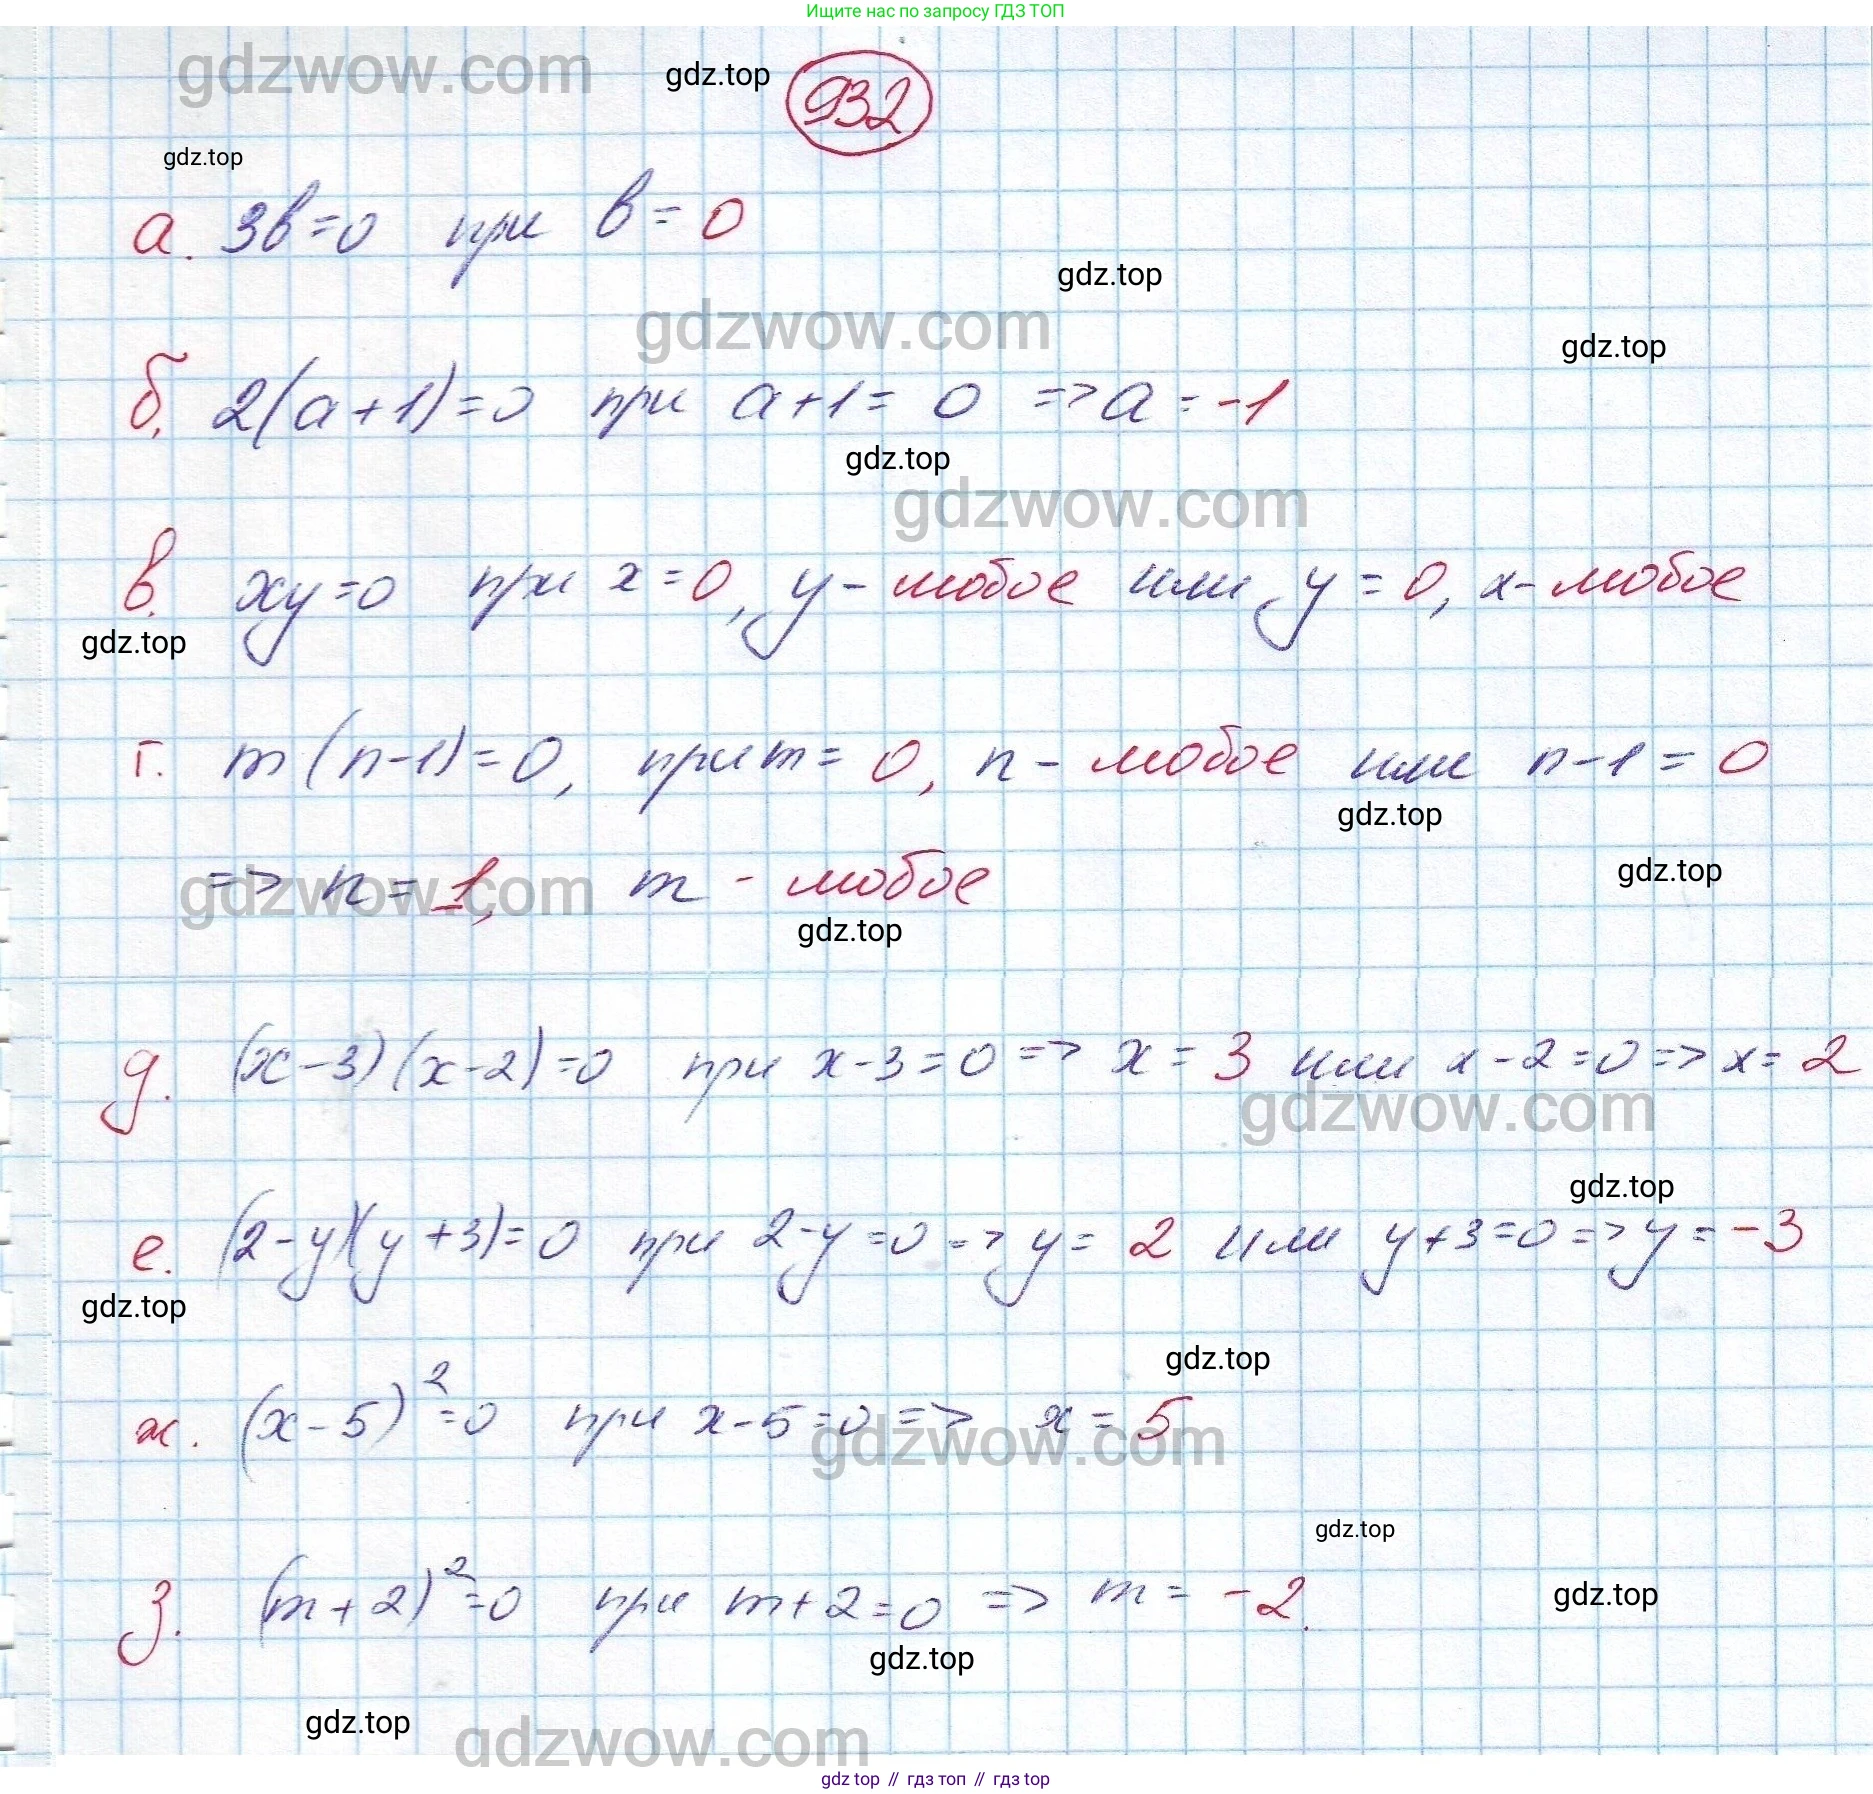 Ищите нас по запросу ГДЗ ТОП
gdzwow.com
gdz.top
932
gdz.top
а. 3b=0 при b=0
gdz.top
gdzwow.com
gdz.top
б. 2(a+1)=0 при a+1=0 => a=-1
gdz.top
gdzwow.com
в. xy=0 при x=0, y - любое или y=0, x- любое
gdz.top
г. m(n-1)=0, при m=0, n - любое или n-1=0
gdz.top
=> n=1, m - любое
gdz.top
gdzwow.com
gdz.top
д. (x-3)(x-2)=0 при x-3=0 => x=3 или x-2=0 => x=2
gdzwow.com
gdz.top
е. (2-y)(y+3)=0 при 2-y=0 => y=2 или y+3=0 => y=-3
gdz.top
gdz.top
ж. (x-5)²=0 при x-5=0 => x=5
gdzwow.com
gdz.top
з. (m+2)²=0 при m+2=0 => m=-2.
gdz.top
gdz.top
gdz.top
gdzwow.com
gdz top // гдз топ // гдз top